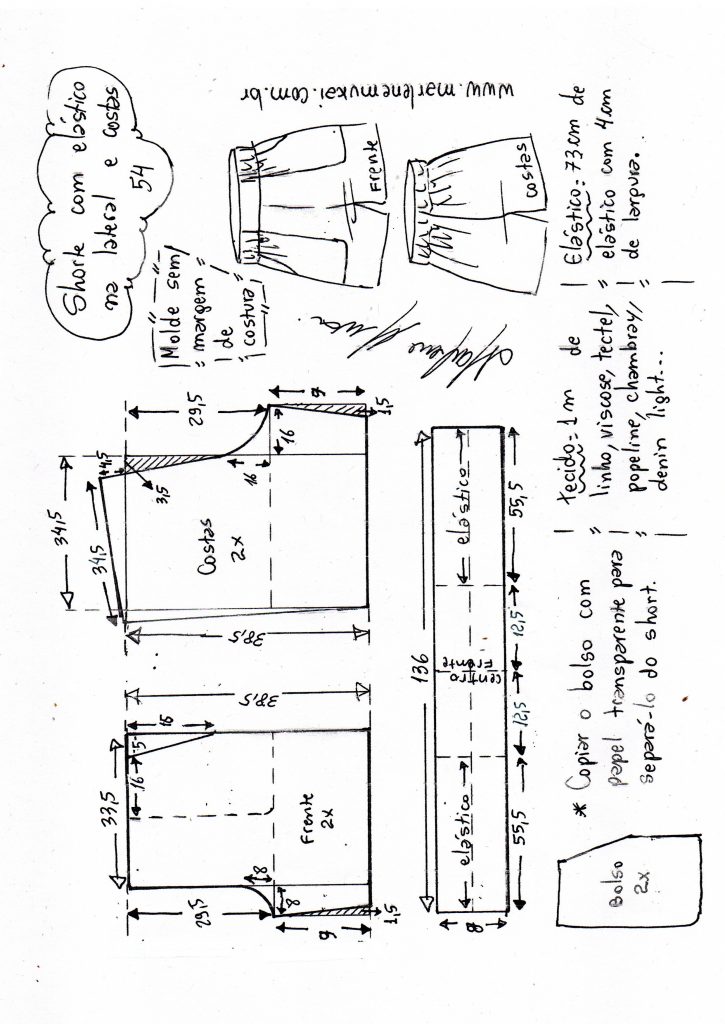 Shorte com elástico
na lateral e costas
54
Molde sem
margem
de
costura
www.marlenemukai.com.br
Frente
costas
33,5
5
15
16
Frente
2x
8
8
29,5
9
1,5
38,5
34,5
34,5
4,5
3,5
29,5
Costas
2x
16
16
9
1,5
38,5
136
elástico
centro
Frente
elástico
8
55,5
12,5
12,5
55,5
Bolso
2x
* Copiar o bolso com
papel transparente para
separá-lo do short.
Tecido: 1 m de
linho, viscose, tectel,
popeline, chambray,
denin light...
Elástico: 73cm de
elástico com 4cm
de largura.